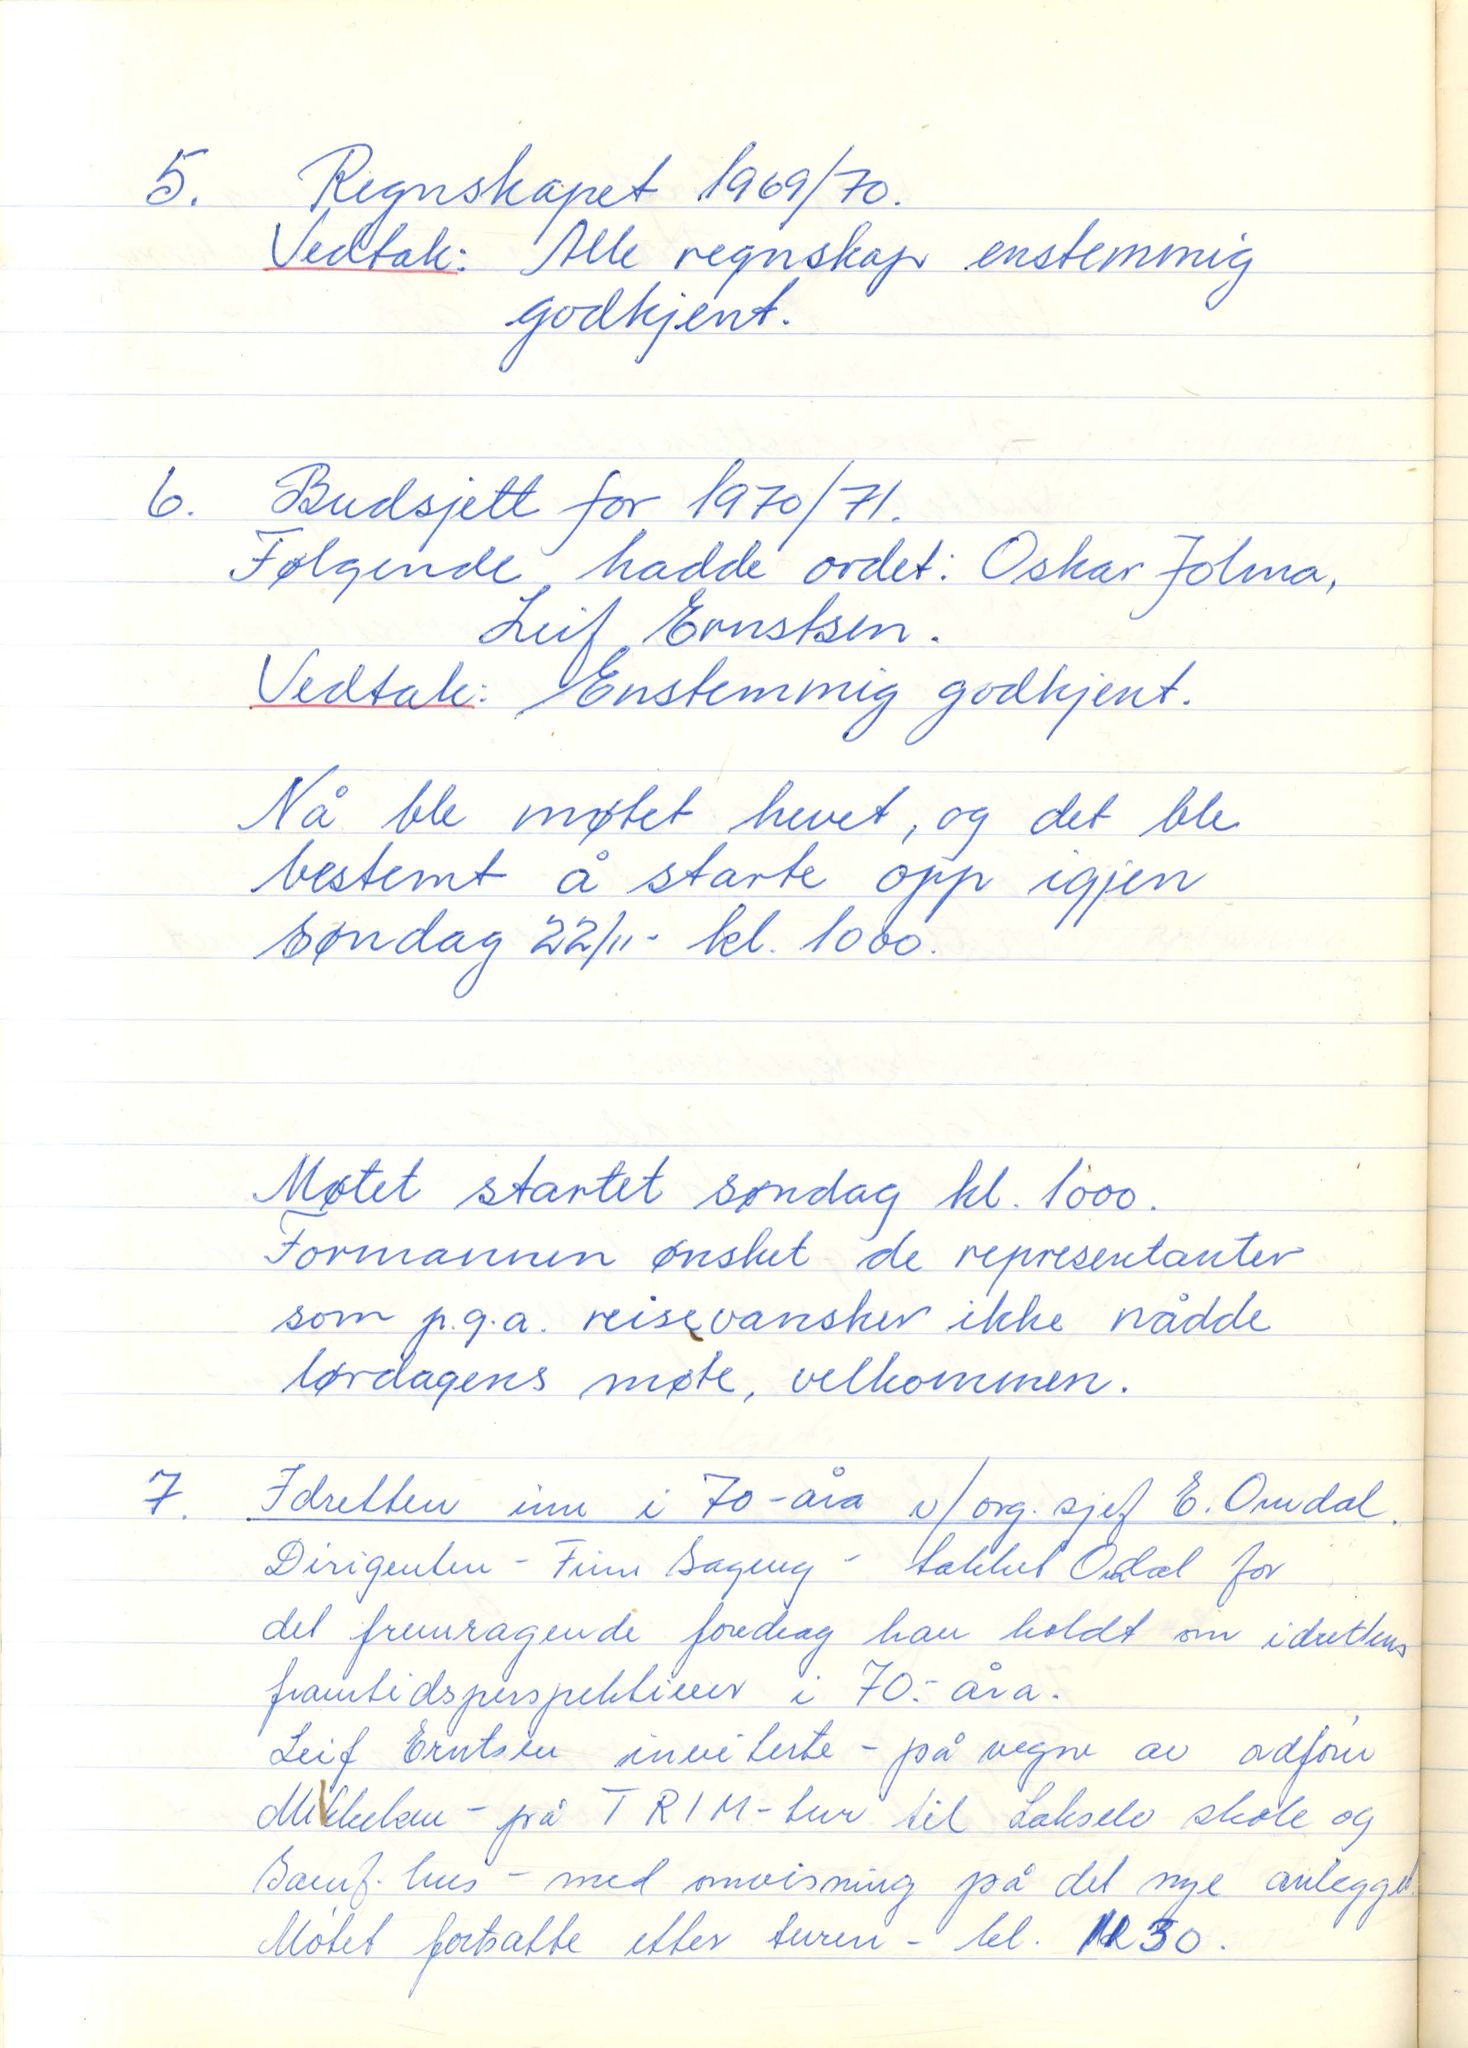 5. Regnskapet 1969/70.
Vedtak: Alle regnskap enstemmig
godkjent.
6. Budsjett for 1970/71.
Følgende hadde ordet: Oskar Jolma,
Leif Ernstsen.
Vedtak: Enstemmig godkjent.
Nå ble møtet hevet, og det ble
bestemt å starte opp igjen
søndag 22/11- kl. 1000.
Møtet startet søndag kl. 1000.
Formannen ønsket de representanter
som p.g.a. reisevansker ikke nådde
lørdagens møte, velkommen.
7. Idretten inn i 70-åra v/org. sjef E. Omdal.
Dirigenten - Finn Sagen - takket Omdal for
det fremragende foredrag han holdt om idrettens
framtidsperspektiver i 70-åra.
Leif Erntsen inviterte - på vegne av ordfører
Mikkelsen - på TRIM-tur til Lakselv skole og
Samf. hus - med omvisning på det nye anlegget.
Møtet fortsatte etter turen - kl. 1130.